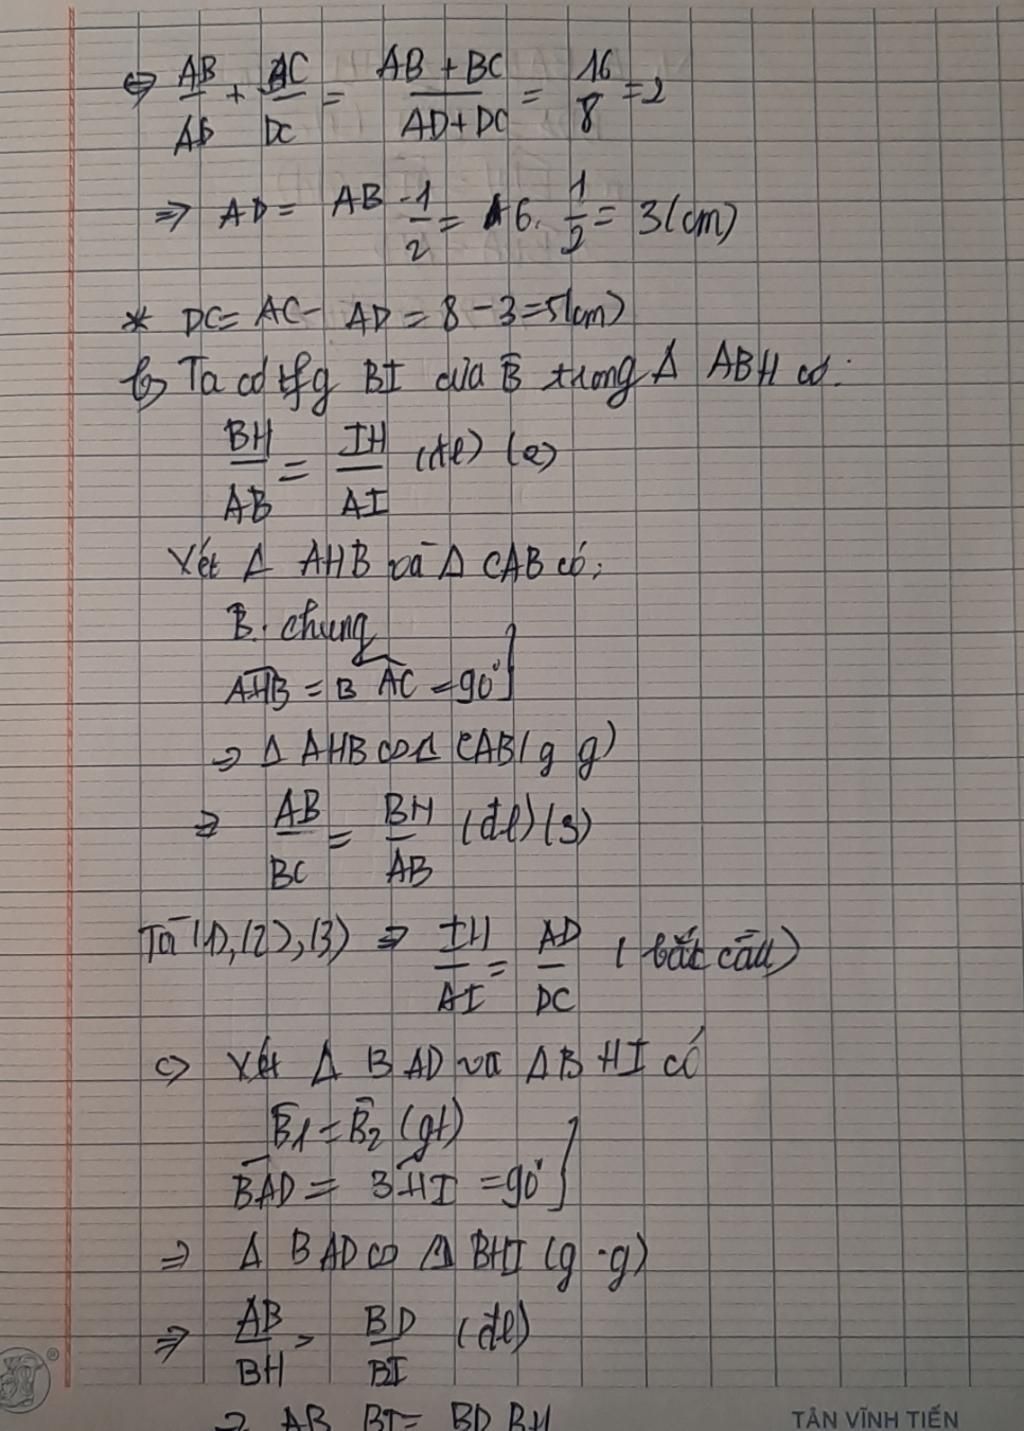 ⇔ AB/AD + AC/DC = (AB + BC)/(AD + DC) = 16/8 = 2
⇒ AD = AB · 1/2 = 6 · 1/2 = 3 (cm)
* DC = AC - AD = 8 - 3 = 5 (cm)
b) Ta có tfg BI của B̂ trong Δ ABH có:
BH/AB = IH/AI (đl) (2)
Xét Δ AHB và Δ CAB có:
B̂ chung
AHB = BAC = 90° }
⇒ Δ AHB ∽ Δ CAB (g g)
⇒ AB/BC = BH/AB (đl) (3)
Từ (1), (2), (3) ⇒ IH/AI = AD/DC (bắc cầu)
c) Xét Δ BAD và Δ BHI có
B̂1 = B̂2 (gt)
BAD = BHI = 90° }
⇒ Δ BAD ∽ Δ BHI (g · g)
⇒ AB/BH = BD/BI (đl)
⇒ AB BI = BD BH
TÂN VĨNH TIẾN